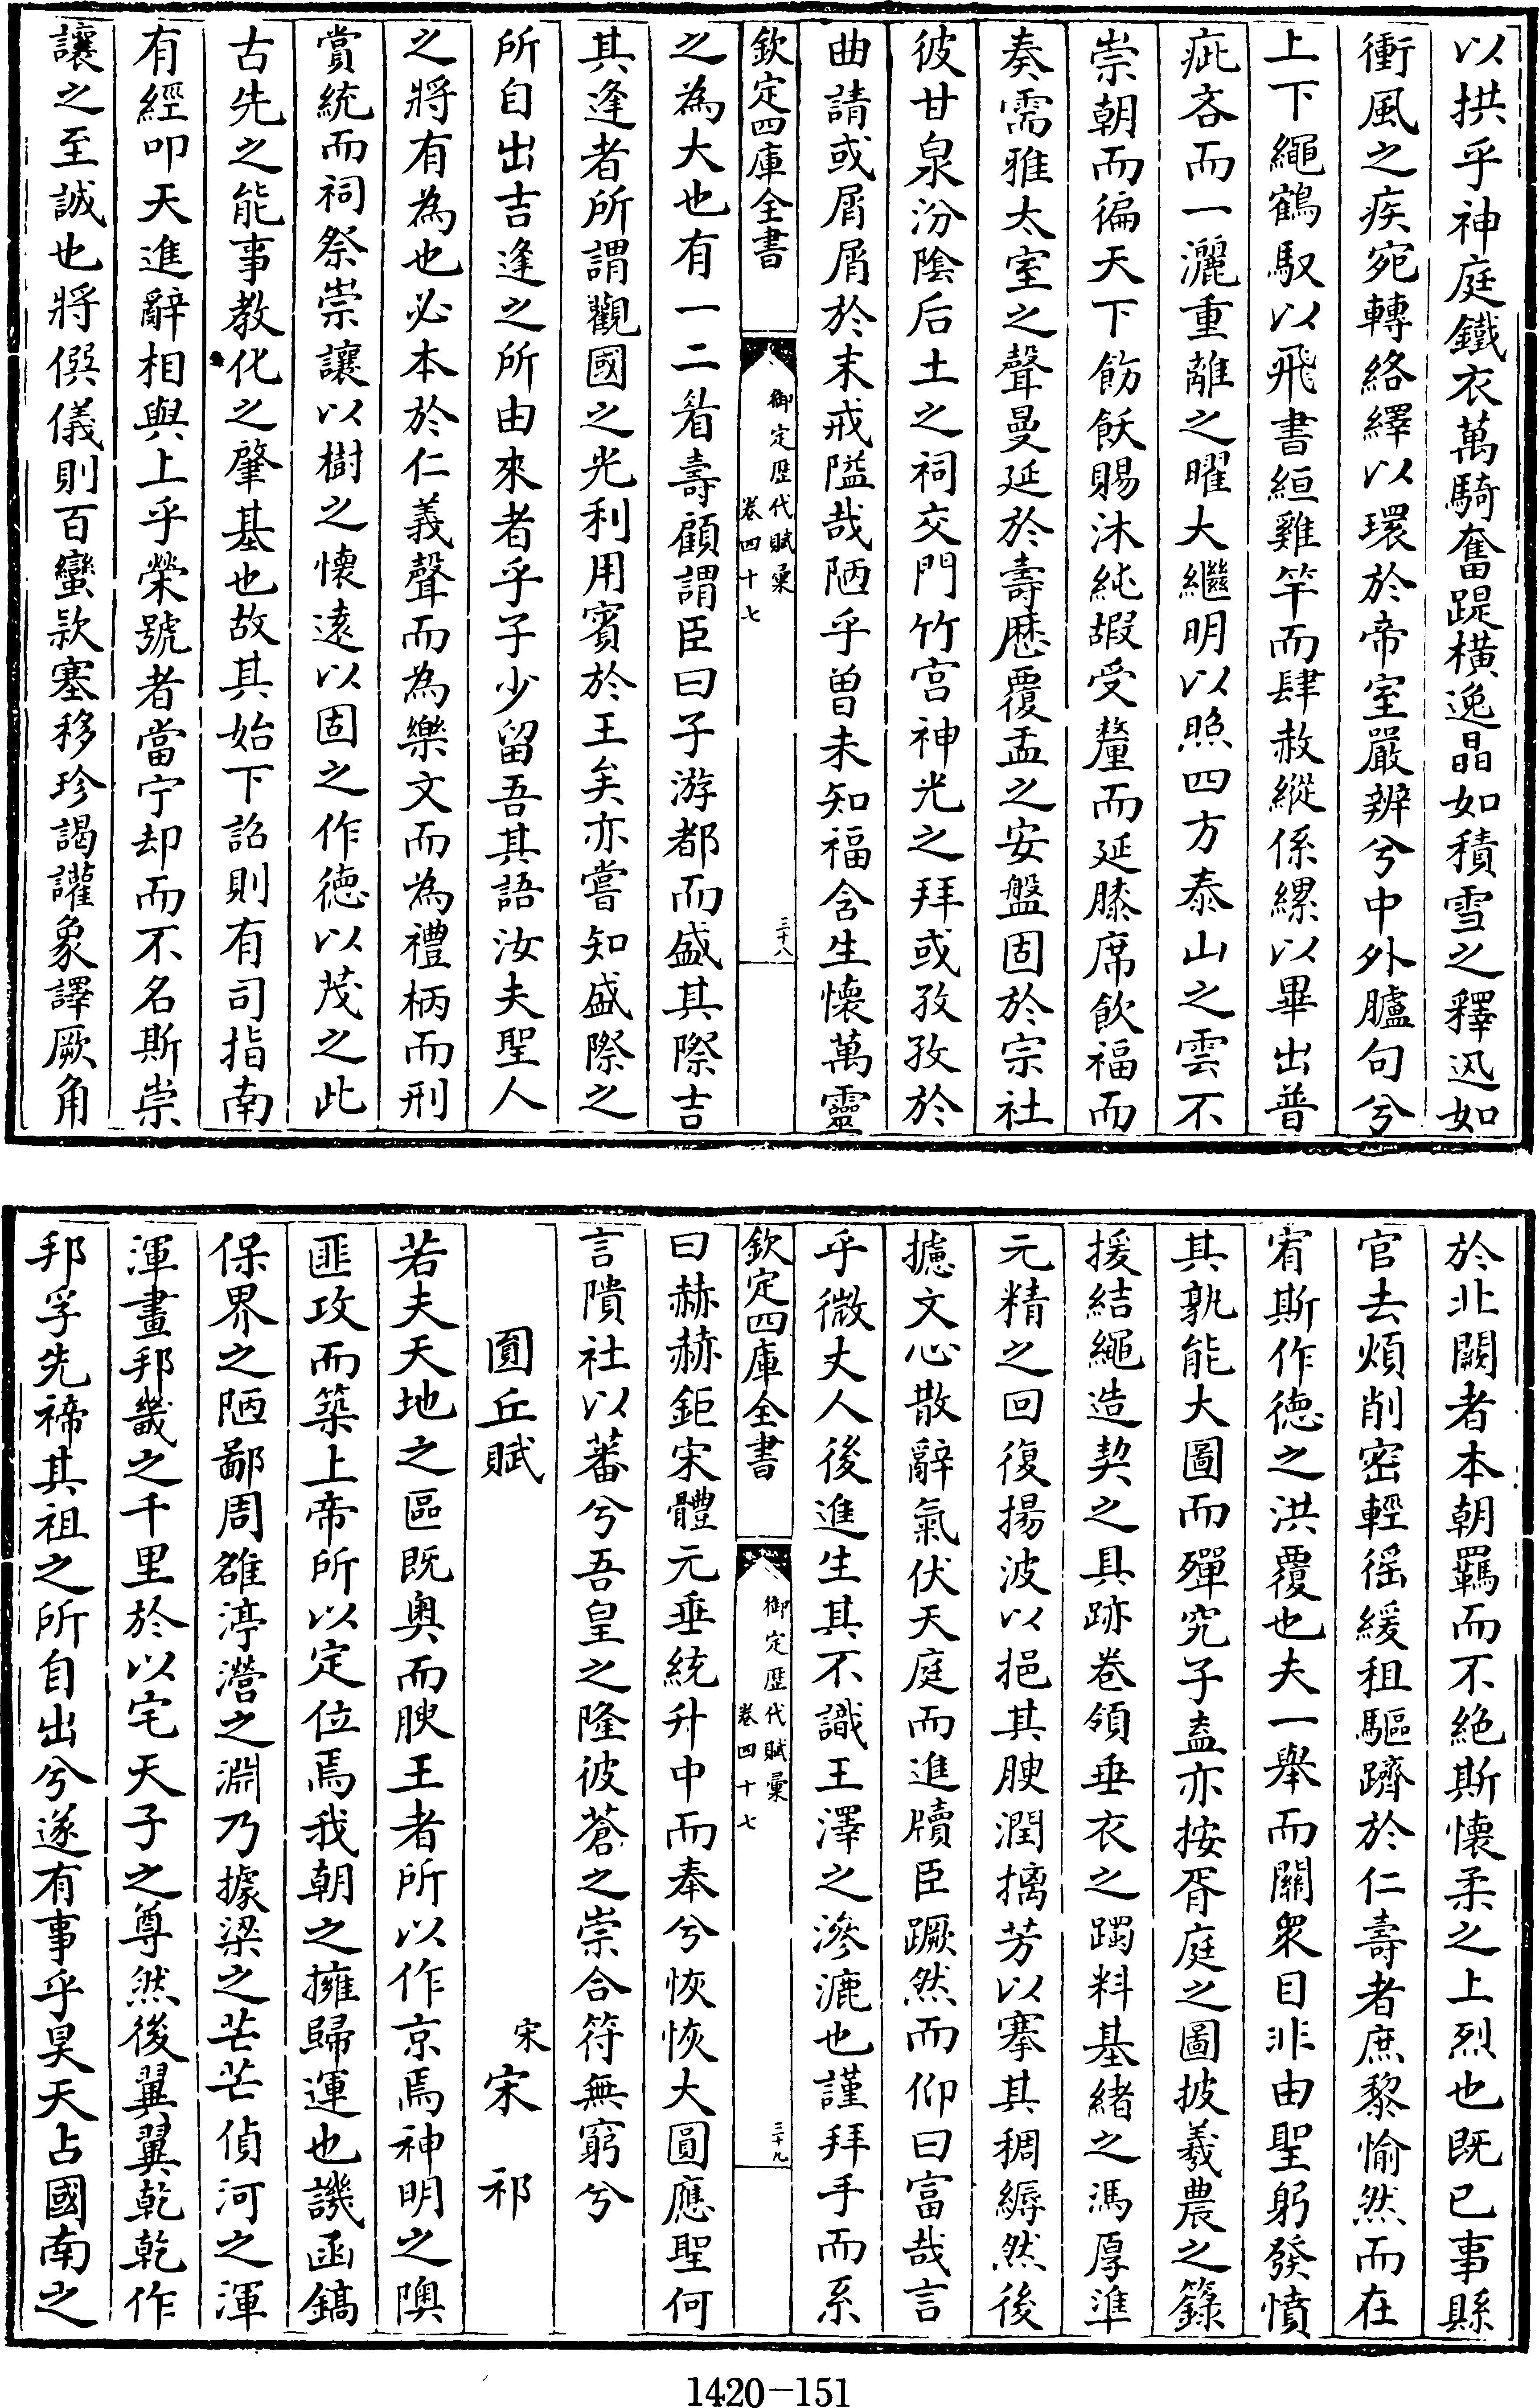 以拱乎神庭鐵衣萬騎奮踶橫逸晶如積雪之釋迅如
衝風之疾宛轉絡繹以環於帝室嚴辨兮中外臚句兮
上下繩鶴馭以飛書絙雞竿而肆赦縱係縲以畢出普
疵吝而一灑重離之曜大繼明以照四方泰山之雲不
崇朝而徧天下飭飫賜沐純嘏受釐而延膝席飲福而
奏需雅太室之聲曼延於壽厯覆盂之安盤固於宗社
彼甘泉汾陰后土之祠交門竹宫神光之拜或孜孜於
曲請或屑屑於末戒隘哉陋乎曽未知福含生懷萬靈
欽定四庫全書
御定歴代賦彙
卷四十七
三十八
之為大也有一二耇壽顧謂臣曰子游都而盛其際吉
其逢者所謂觀國之光利用賓於王矣亦嘗知盛際之
所自出吉逢之所由來者乎子少留吾其語汝夫聖人
之將有為也必本於仁義聲而為樂文而為禮柄而刑
賞統而祠祭崇讓以樹之懷遠以固之作徳以茂之此
古先之能事教化之肇基也故其始下詔則有司指南
有經叩天進辭相與上乎榮號者當宁却而不名斯崇
讓之至誠也將僎儀則百蠻款塞移珍謁讙象譯厥角
於北闕者本朝羈而不絶斯懷柔之上烈也既已事縣
官去煩削密輕徭緩租驅躋於仁壽者庶黎愉然而在
宥斯作徳之洪覆也夫一舉而關衆目非由聖躬發憤
其孰能大圖而殫究子盍亦按胥庭之圖披羲農之籙
援結繩造契之具跡卷領垂衣之躅料基緒之馮厚準
元精之回復揚波以挹其腴潤摛芳以搴其稠縟然後
攄文心散辭氣伏天庭而進牘臣蹶然而仰曰富哉言
乎微丈人後進生其不識王澤之滲漉也謹拜手而系
欽定四庫全書
御定歴代賦彙
卷四十七
三十九
曰赫赫鉅宋體元垂統升中而奉兮恢恢大圓應聖何
言隤社以蕃兮吾皇之隆彼蒼之崇合符無窮兮
圓丘賦
宋宋祁
若夫天地之區既奥而腴王者所以作京焉神明之隩
匪攻而築上帝所以定位焉我朝之擁歸運也譏函鎬
保界之陋鄙周雒渟瀯之淵乃據梁之芒芒偵河之渾
渾畫邦畿之千里於以宅天子之尊然後翼翼乾乾作
邦孚先禘其祖之所自出兮遂有事乎昊天占國南之
1420-151